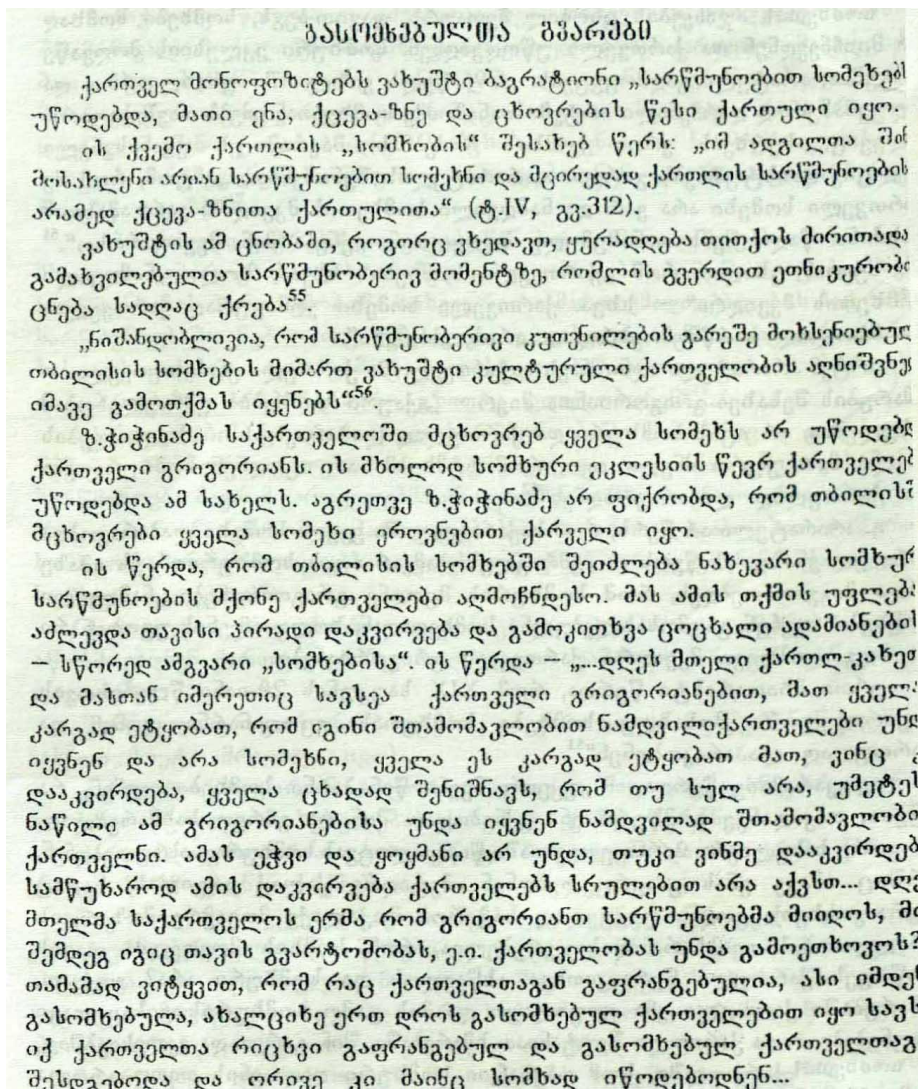 გასომხებულთა გვარები
ქართველ მონოფოზიტებს ვახუშტი ბაგრატიონი „სარწმუნოებით სომეხებ
უწოდებდა, მათი ენა, ქცევა-ზნე და ცხოვრების წესი ქართული იყო.
ის ქვემო ქართლის „სომხობის“ შესახებ წერს: „იმ ადგილთა შინ
მოსახლენი არიან სარწმუნოებით სომეხნი და მცირედად ქართლის სარწმუნოების
არამედ ქცევა-ზნითა ქართულითა“ (ტ.IV, გვ.312).
ვახუშტის ამ ცნობაში, როგორც ვხედავთ, ყურადღება თითქოს ძირითადა
გამახვილებულია სარწმუნობერივ მომენტზე, რომლის გვერდით ეთნიკურობი
ცნება სადღაც ქრება55.
„ნიშანდობლივია, რომ სარწმუნობერივი კუთვნილების გარეშე მოხსენიებულ
თბილისის სომხების მიმართ ვახუშტი კულტურული ქართველობის აღნიშვნე
იმავე გამოთქმას იყენებს“56.
ზ.ჭიჭინაძე საქართველოში მცხოვრებ ყველა სომეხს არ უწოდებდ
ქართველი გრიგორიანს. ის მხოლოდ სომხური ეკლესიის წევრ ქართველებ
უწოდებდა ამ სახელს. აგრეთვე ზ.ჭიჭინაძე არ ფიქრობდა, რომ თბილისი
მცხოვრები ყველა სომეხი ეროვნებით ქარველი იყო.
ის წერდა, რომ თბილისის სომხებში შეიძლება ნახევარი სომხურ
სარწმუნოების მქონე ქართველები აღმოჩნდესო. მას ამის თქმის უფლება
აძლევდა თავისი პირადი დაკვირვება და გამოკითხვა ცოცხალი ადამიანების
– სწორედ ამგვარი „სომხებისა“. ის წერდა – „...დღეს მთელი ქართლ-კახეთ
და მასთან იმერეთიც სავსეა ქართველი გრიგორიანებით, მათ ყველა
კარგად ეტყობათ, რომ იგინი შთამომავლობით ნამდვილიქართველები უნდ
იყვნენ და არა სომეხნი, ყველა ეს კარგად ეტყობათ მათ, ვინც კ
დააკვირდება, ყველა ცხადად შენიშნავს, რომ თუ სულ არა, უმეტეს
ნაწილი ამ გრიგორიანებისა უნდა იყვნენ ნამდვილად შთამომავლობი
ქართველნი. ამას ეჭვი და ყოყმანი არ უნდა, თუკი ვინმე დააკვირდებ
სამწუხაროდ ამის დაკვირვება ქართველებს სრულებით არა აქვსთ... დღე
მთელმა საქართველოს ერმა რომ გრიგორიანთ სარწმუნოებმა მიიღოს, მი
შემდეგ იგიც თავის გვარტომობას, ე.ი. ქართველობას უნდა გამოეთხოვოს?
თამამად ვიტყვით, რომ რაც ქართველთაგან გაფრანგებულია, ასი იმდენ
გასომხებულა, ახალციხე ერთ დროს გასომხებულ ქართველებით იყო სავს
იქ ქართველთა რიცხვი გაფრანგებულ და გასომხებულ ქართველთაგ
შესდგებოდა და ორივე კი მაინც სომხად იწოდებოდნენ...